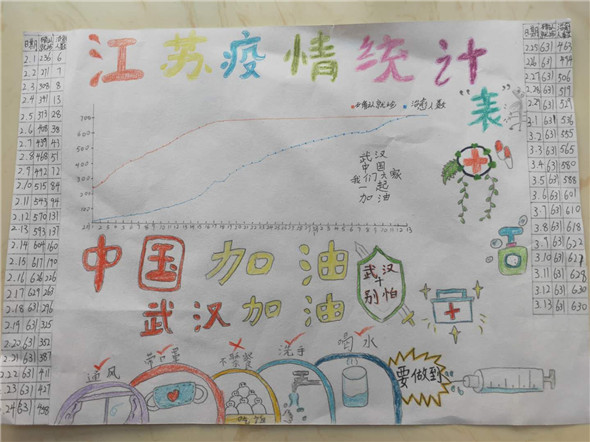 江苏疫情统计
"表"
日期 确认 治愈人数
2.1 236 6
2.2 271 7
2.3 308 8
2.4 341 13
2.5 373 28
2.6 408 38
2.7 439 43
2.8 468 51
2.9 492 72
2.10 515 84
2.11 543 94
2.12 570 131
2.13 593 137
2.14 604 160
2.15 617 190
2.16 626 226
2.17 629 263
2.18 631 296
2.19 631 325
2.20 631 352
2.21 631 387
2.22 631 411
2.23 631 427
2.24 631 448
700
600
500
400
300
200
100
治愈人数
武汉
中国
我们大家
一起
加油
中国加油
武汉加油
武汉
别怕
通风
带口罩
不聚餐
吃饭
洗手
喝水
要做到
日期 确认 人数
2.25 631 463
2.26 61 494
2.27 631 506
2.28 631 519
2.29 631 529
3.1 631 536
3.2 631 555
3.3 631 565
3.4 631 580
3.5 631 588
3.6 631 601
3.7 631 610
3.8 631 618
3.1 631 622
3.10 631 627
3.11 631 628
3.12 631 630
3.13 631 630